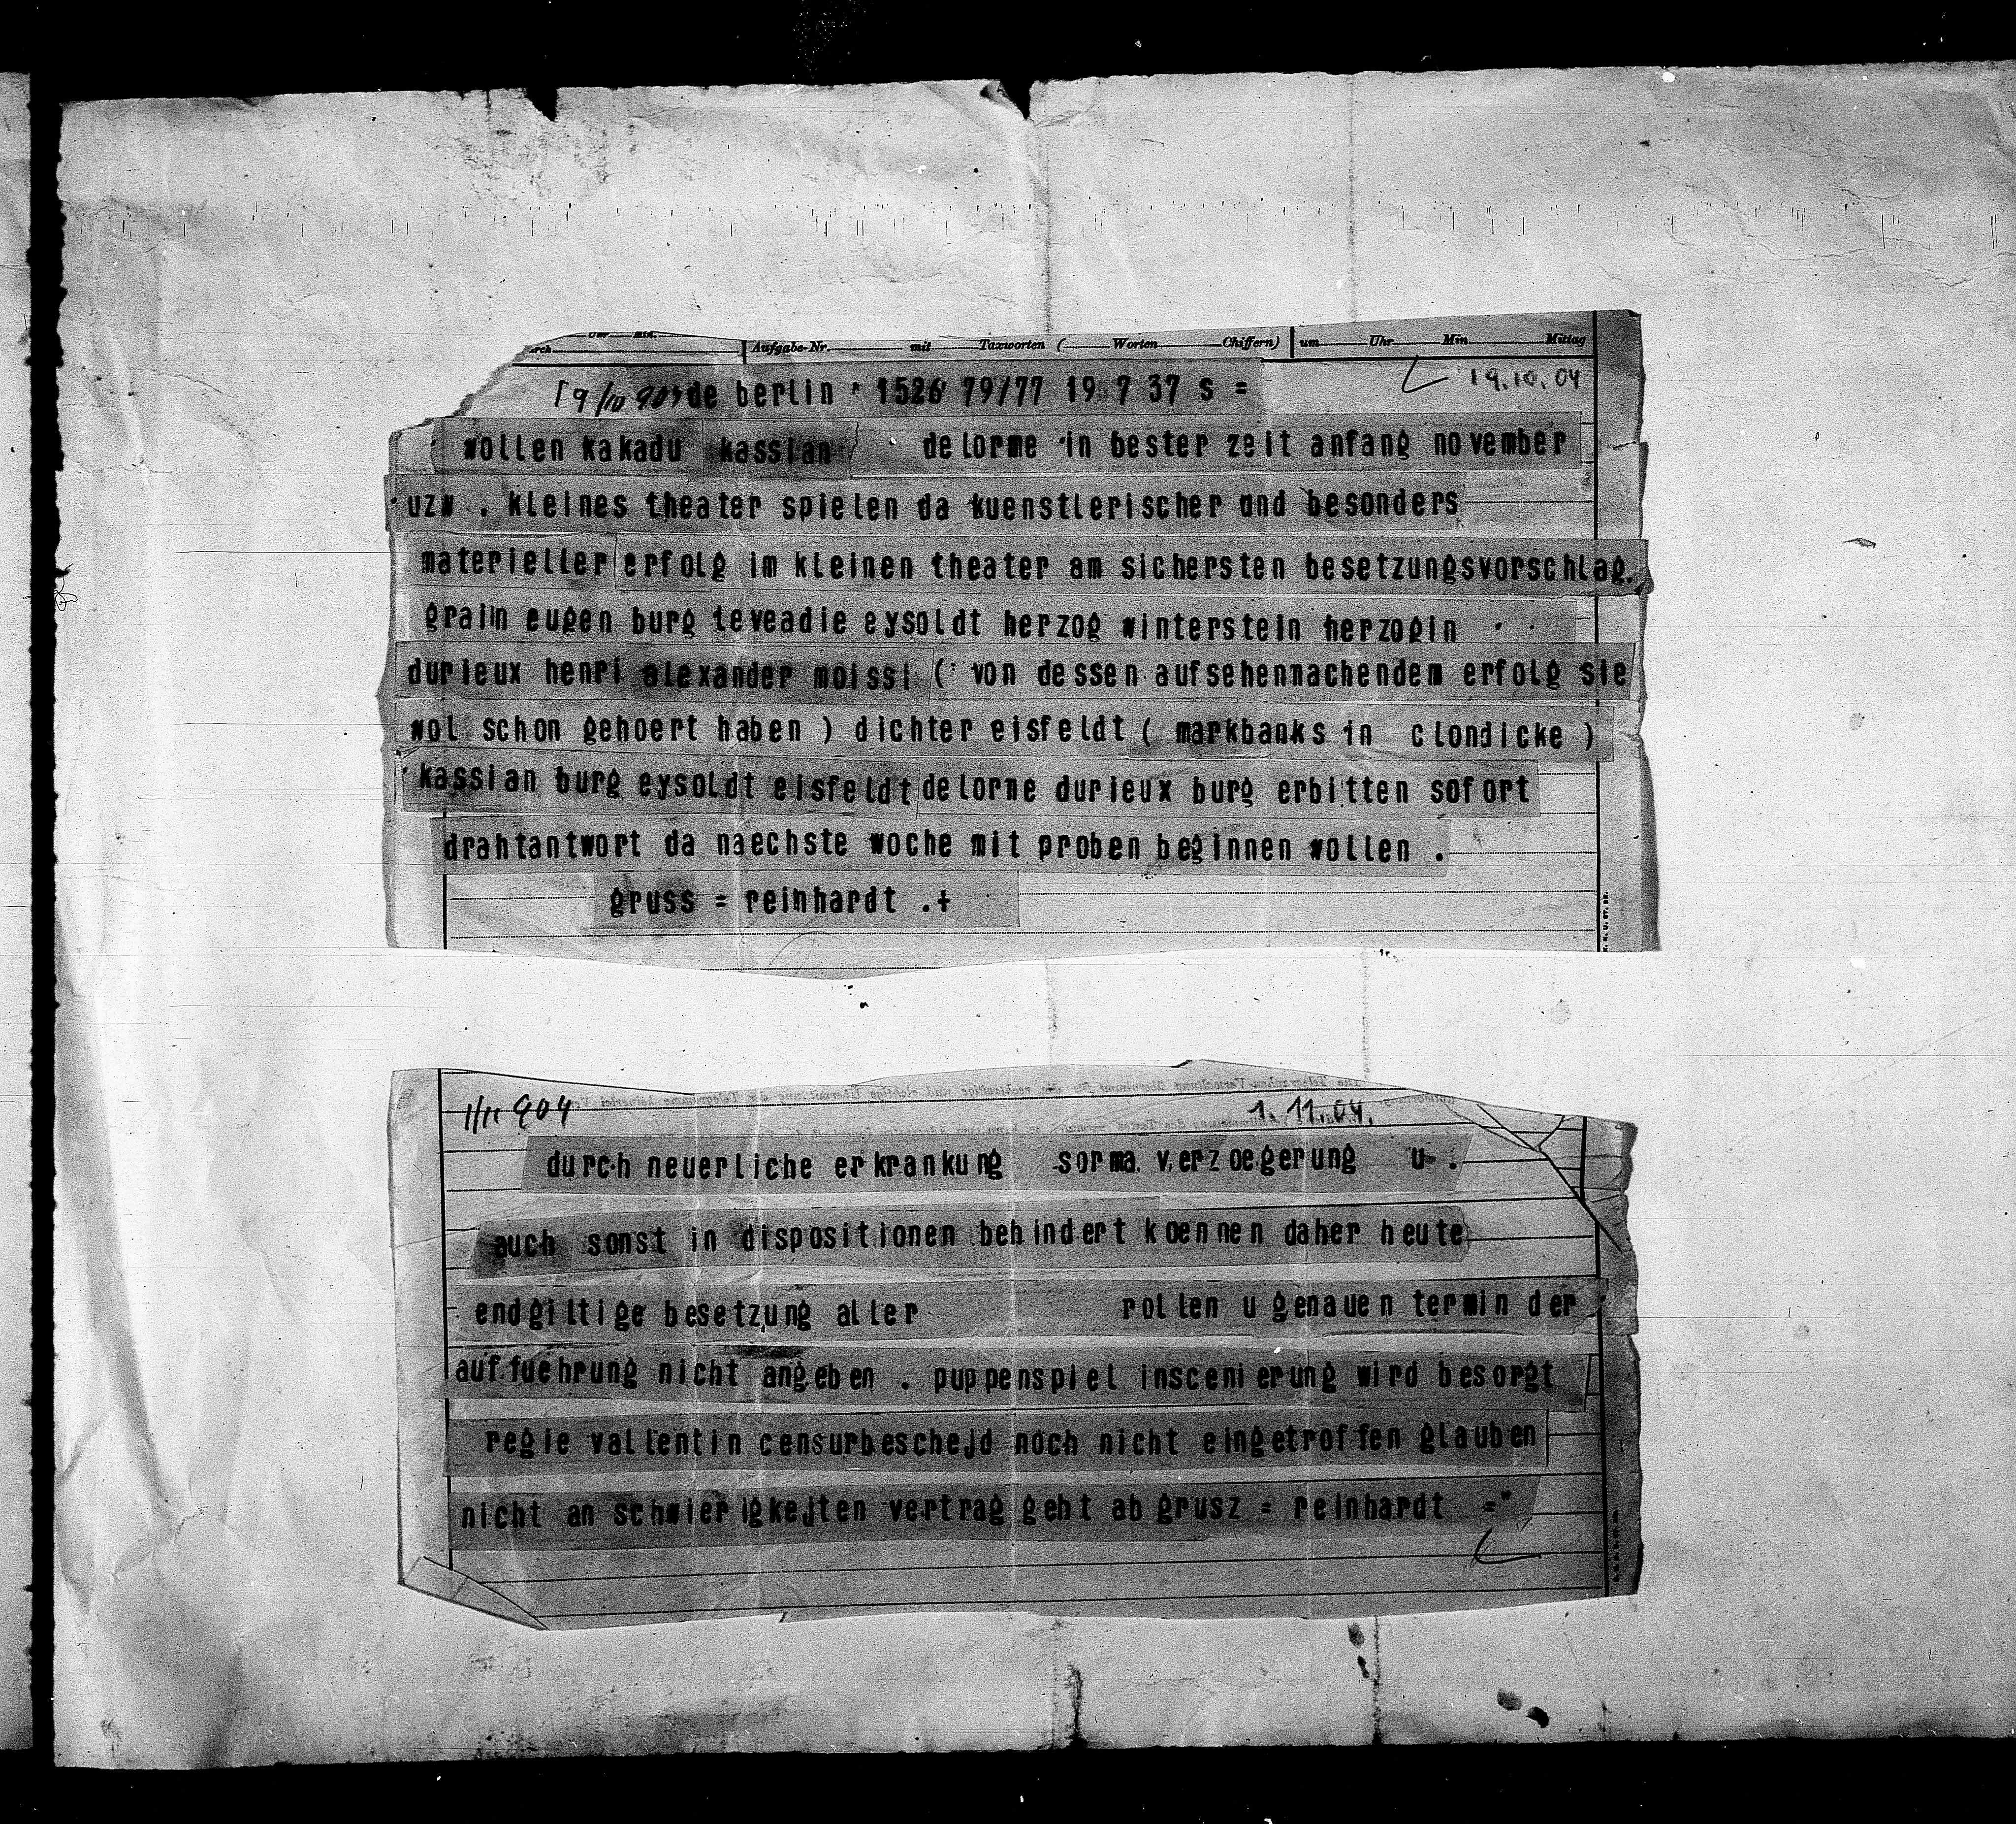 Uhr min.
Aufgabe-Nr. mit Taxworten ( Worten Chiffern) um Uhr Min Mittag
19/10 904 de berlin 1526 79/77 19 7 37 s =
19.10.04
wollen kakadu kassian delorme in bester zeit anfang november
uzw . kleines theater spielen da kuenstlerischer und besonders
materieller erfolg im kleinen theater am sichersten besetzungsvorschlag.
grain eugen burg leveadie eysoldt herzog winterstein herzogin
durieux henri alexander moissi ( von dessen aufsehenmachendem erfolg sie
wol schon gehoert haben ) dichter eisfeldt ( markbanks in clondicke )
kassian burg eysoldt eisfeldt delorme durieux burg erbitten sofort
drahtantwort da naechste woche mit proben beginnen wollen .
gruss = reinhardt .+
1/11 904
1. 11. 04.
durch neuerliche erkrankung sorma verzoegerung u .
auch sonst in dispositionen behindert koennen daher heute
endgiltige besetzung aller rollen u genauen termin der
auffuehrung nicht angeben . puppenspiel inscenierung wird besorgt
regie vallentin censurbeschejd noch nicht eingetroffen glauben
nicht an schwierigkejten vertrag geht ab grusz = reinhardt =